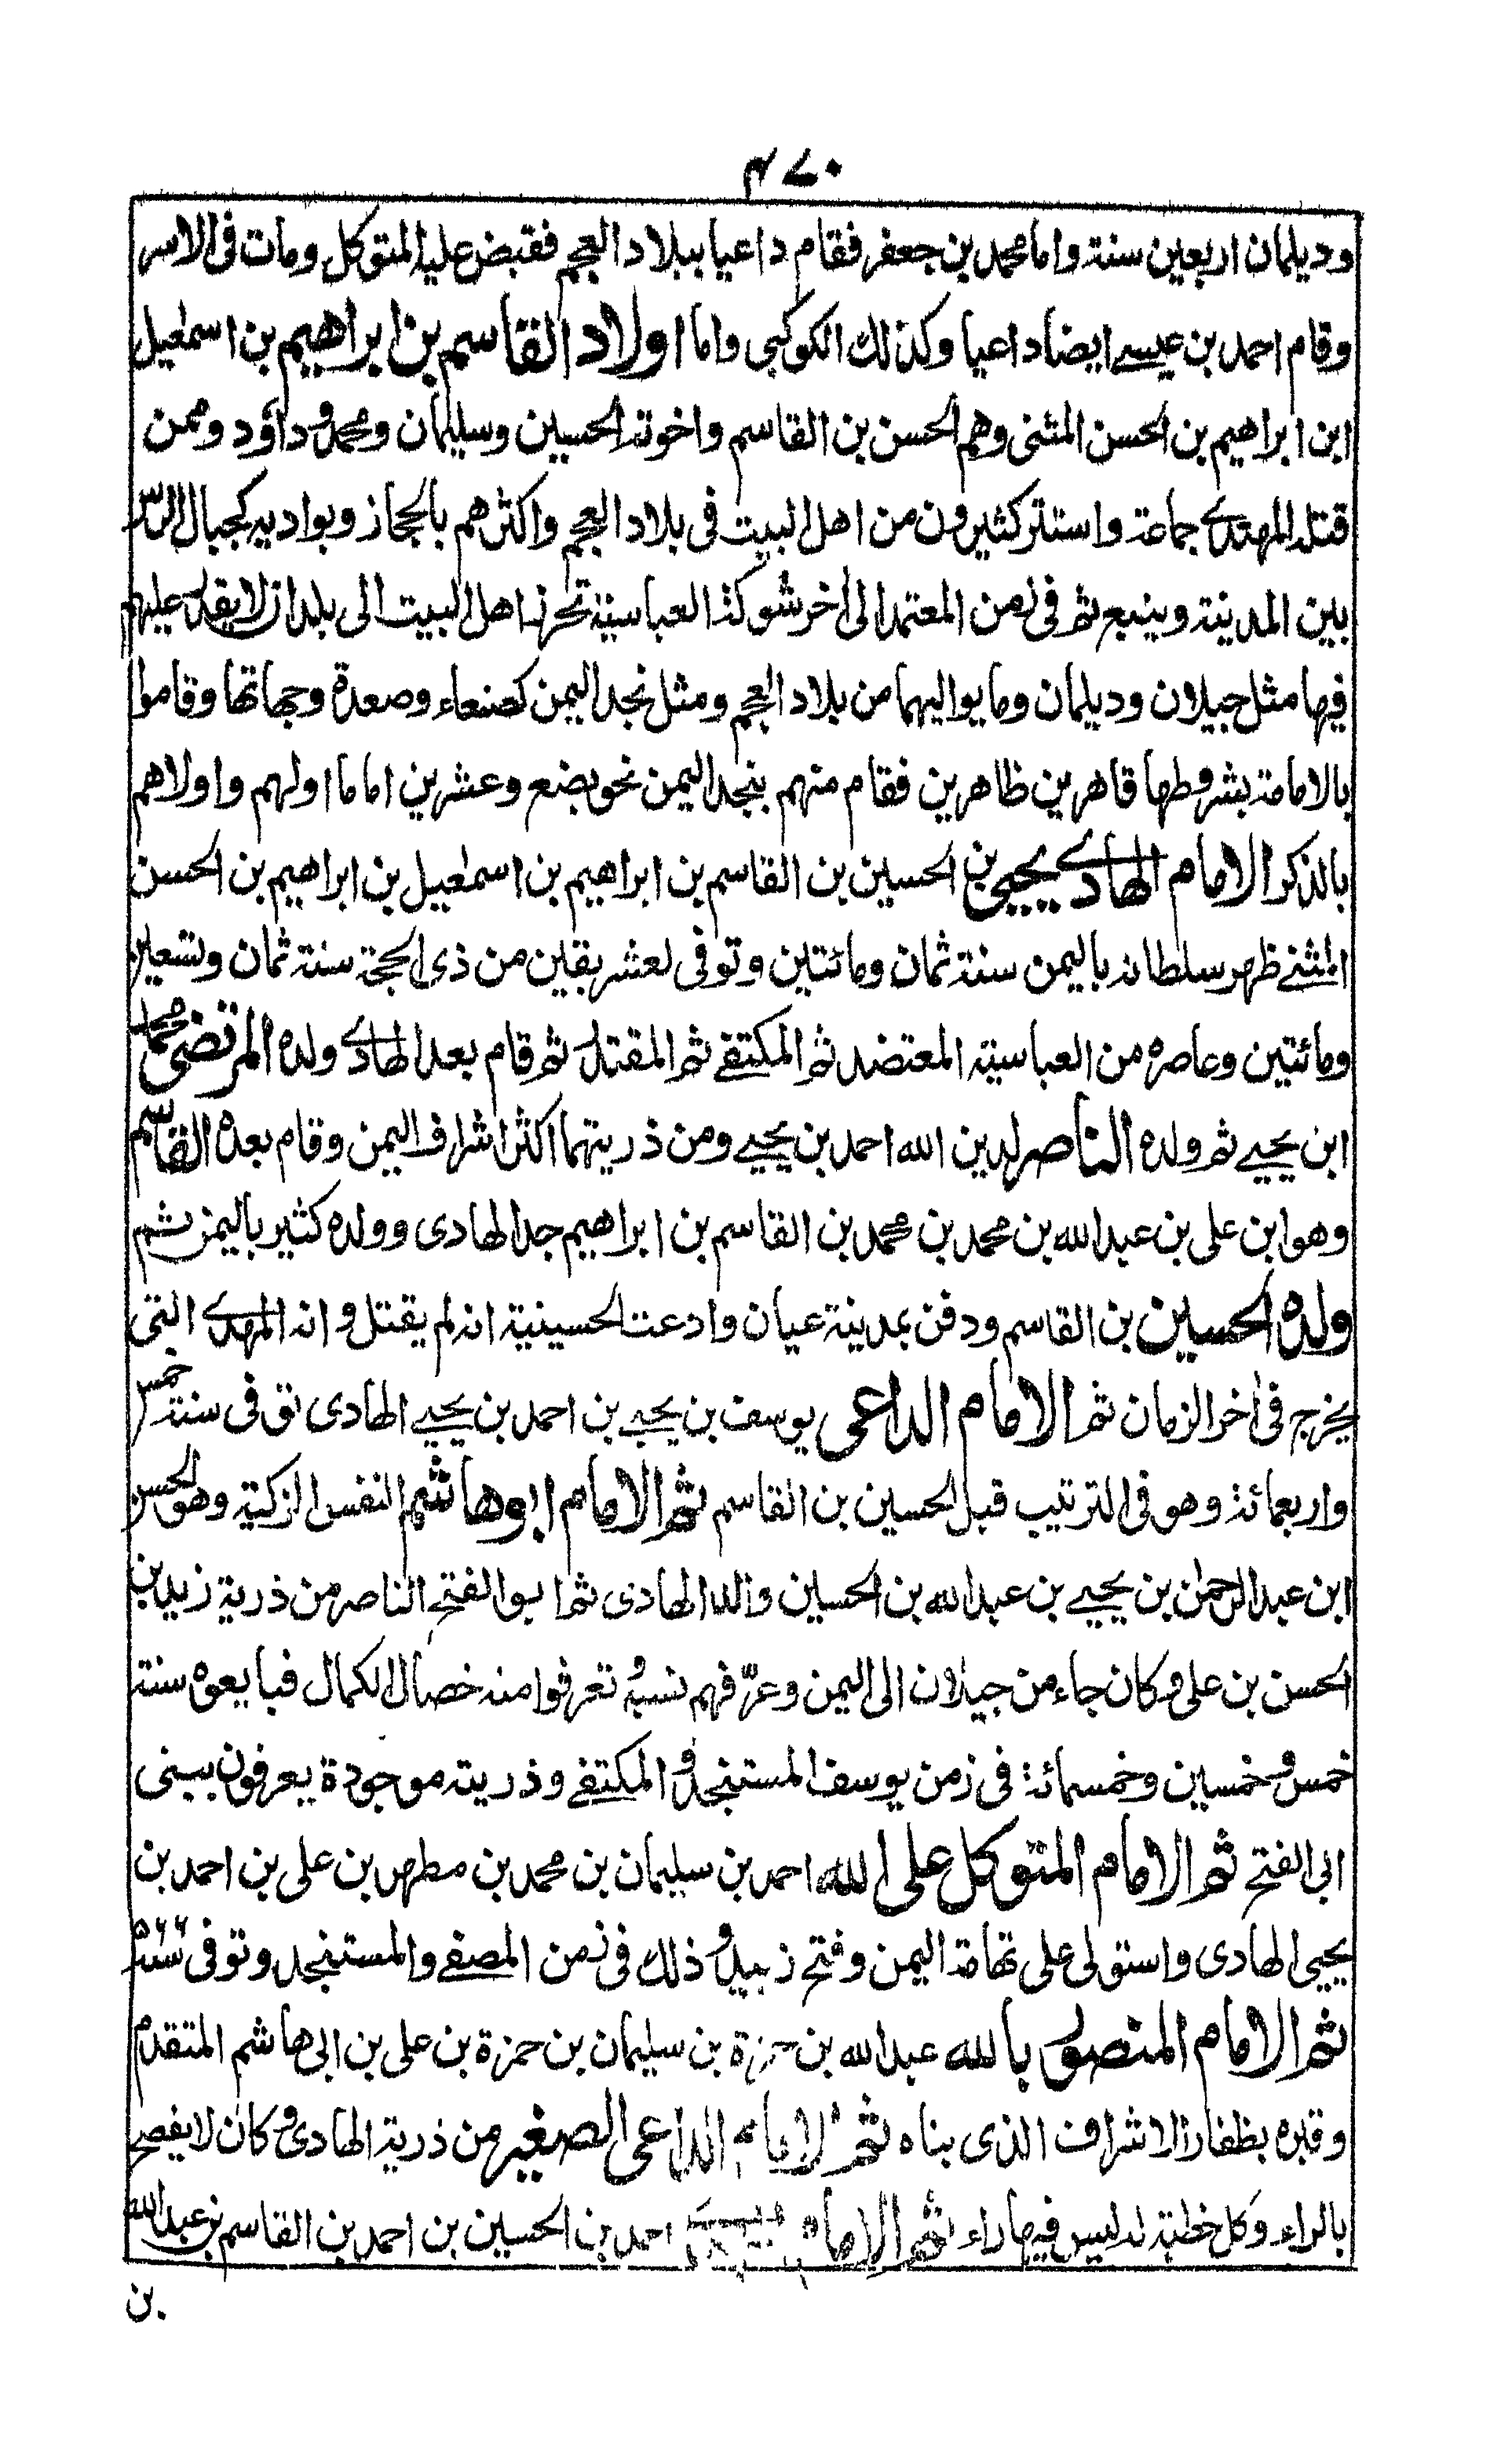 ٤٧٠
وديلمان اربعين سنة واما محمد بن جعفر فقام داعيا ببلاد العجم فقبض عليه المتوكل ومات فى الاسر
وقام احمد بن عيسے ايضا داعيا وكذلك الكوكبى واما اولاد القاسم بن ابراهيم بن اسمعيل
ابن ابراهيم بن الحسن المثنى وهم الحسن بن القاسم واخوته الحسين وسليمان ومحمد وداؤد وممن
قتله المهتدے جماعة واستتر كثيرون من اهل البيت فى بلاد العجم واكثرهم بالحجاز وبواديه كجبال الرس
بين المدينة وينبع ثم فى زمن المعتمد الى أخر شوكة العباسية تحرز اهل البيت الى بلدان لا يقدر عليهم
فيها مثل جيلان وديلمان وما يواليهما من بلاد العجم ومثل نجد اليمن كصنعاء وصعدة وجهاتها وقاموا
بالامامة بشروطها قاهرين ظاهرين فقام منهم بنجد اليمن نحو بضع وعشرين اماما اولهم واولاهم
بالذكر الامام الهادے يحيى بن الحسين بن القاسم بن ابراهيم بن اسمعيل بن ابراهيم بن الحسن
المثنے ظهر سلطانه باليمن سنة ثمان ومائتين وتوفى لعشر بقين من ذى الحجة سنة ثمان وتسعين
ومائتين وعاصره من العباسية المعتضد ثم المكتفے ثم المقتدر ثم قام بعد الهادے ولده المرتضى محمد
ابن يحيے ثم ولده الناصر لدين الله احمد بن يحيے ومن ذريتهما اكثر اشراف اليمن وقام بعده القاسم
وهو ابن على بن عبد الله بن محمد بن محمد بن القاسم بن ابراهيم جد الهادى وولده كثير باليمن ثم
ولده الحسين بن القاسم ودفن بمدينة عيان وادعت الحسينية انه لم يقتل وانه المهدے التى
يخرج فى أخر الزمان ثم الامام الداعى يوسف بن يحيے بن احمد بن يحيے الهادى توفى سنة خمس
واربعمائة وهو فى الترتيب قبل الحسين بن القاسم ثم الامام ابو هاشم النفس الزكية وهو الحسن
ابن عبد الرحمن بن يحيے بن عبد الله بن الحسين والد الهادى ثم ابو الفتح الناصر من ذرية زيد بن
الحسن بن على وكان جاء من جيلان الى اليمن وعرّفهم نسبه وتعرفوا منه خصال الكمال فبايعوه سنة
خمس وخمسين وخمسمائة فى زمن يوسف المستنجد والمكتفے وذريته موجودة يعرفون ببنى
ابى الفتح ثم الامام المتوكل على الله احمد بن سليمان بن محمد بن مطهر بن على بن احمد بن
يحيى الهادى واستولى على تهامة اليمن وفتح زبيد وذلك فى زمن المصفے والمستنجد وتوفى سنة ٥٦٦
ثم الامام المنصور بالله عبد الله بن حمزة بن سليمان بن حمزة بن على بن ابى هاشم المتقدم
وقبره بظفار الاشراف الذى بناه ثم الامام الداعى الصغير من ذرية الهادى وكان لا يفصح
بالراء وكل خطبة له ليس فيها راء ثم الامام احمد بن الحسين بن احمد بن القاسم بن عبد الله
بن